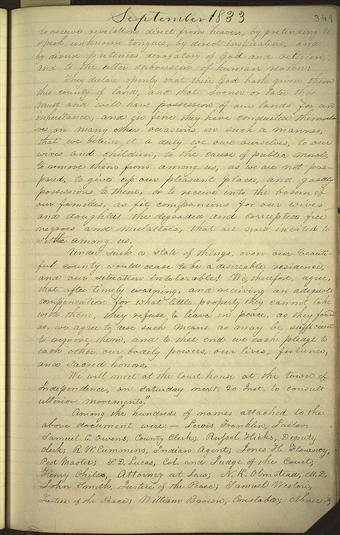 September 1833
349
to receive revelations direct from heaven, by pretending to
speak unknown tongues, by direct inspiration, and
by diverse pretences derogatory of God and religion,
and to the utter subversion of human reason:
They declare openly that their God hath given them
this county of land, and that sooner or later they
must and will have possession of our lands for an
inheritance, and in fine they have conducted themsel-
ves on many other occasions in such a manner,
that we believe it a duty we owe ourselves, to our
wives and children, to the cause of public morals,
to remove them from among us, as we are not pre-
pared to give up our pleasant places, and goodly
possessions to them, or to receive into the bosom of
our families, as fit companions for our wives
and daughters the degraded and corrupted free
negroes and mulattoes, that are now invited to
settle among us.
Under such a state of things, even our beauti-
ful county would cease to be a desireable residence,
and our situation intolerable! We, therefore, agree,
that after timely warning, and receiving an adequate
compensation for what little property they cannot take
with them, they refuse to leave in peace, as they found
us, we agree to use such means as may be sufficient
to remove them, and to that end we each pledge to
each other our bodily powers, our lives, fortunes,
and sacred honors.
We will meet at the court house at the town of
Independence, on Saturday next, 20 Inst. to consult
ulterior movements."
Among the hundreds of names attached to the
above document were — Lewis Franklin, Jailor
Samuel C. Owens, County Clerk, Russel Hicks, Deputy
clerk R. W. Cummins, Indian Agent, Jones H. Flournoy,
Post Master, S. D. Lucas, Col. and Judge of the Court,
Henry Chiles, Attorney at Law, N. K. Olmstead, M. D.
John Smith, Justice of the Peace, Samuel Weston,
Justice of the Peace, William Brown, Constable, Abner